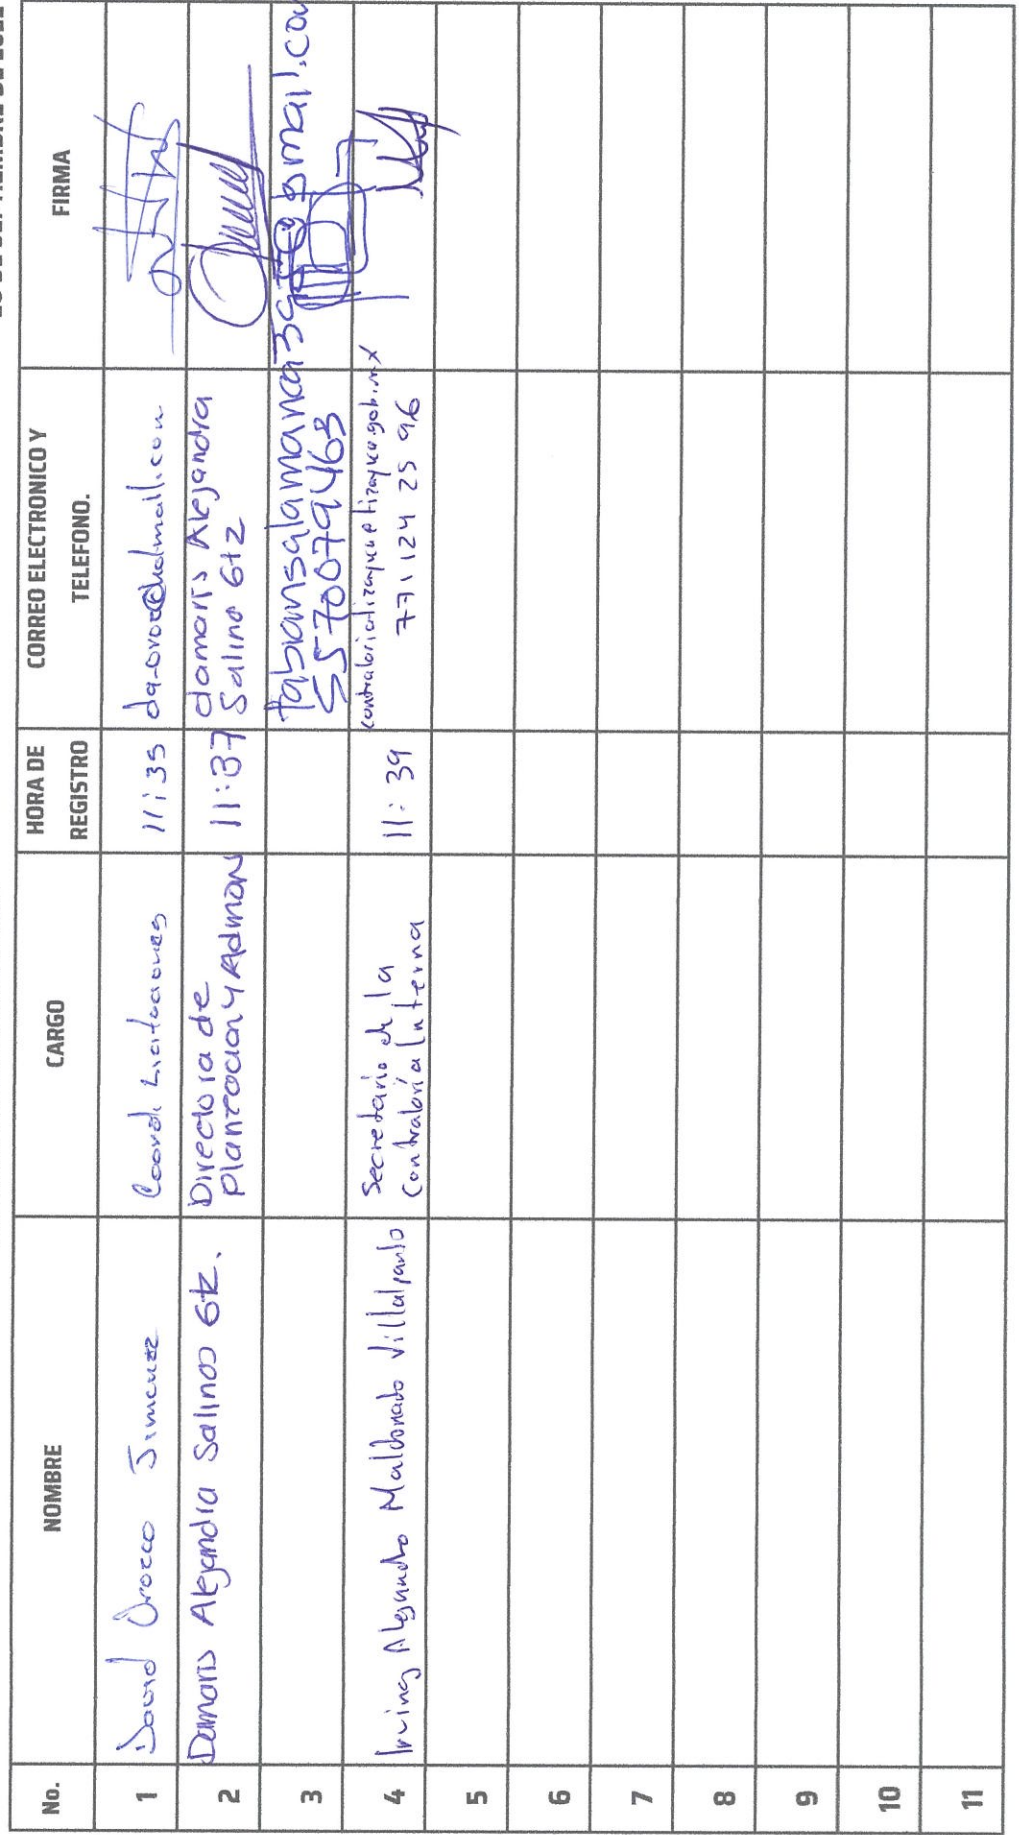 No.
NOMBRE
CARGO
HORA DE
REGISTRO
CORREO ELECTRONICO Y
TELEFONO.
FIRMA
1
David Orozco Jimenez
Coord. Licitaciones
11:35
2
Damaris Alejandra Salinas Gtz.
Directora de
planeacion y Admon
11:37
damaris Alejandra
Salinas Gtz
3
fabiansalamanca3977@gmail.com
5570079463
4
Irving Alejandro Maldonado Villalpando
Secretario de la
Contraloría Interna
11:39
771 124 25 96
5
6
7
8
9
10
11